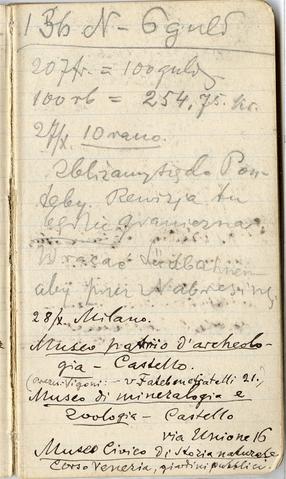 1 Bb N - 6 guld
207 fr. = 100 guld
100 rb = 254,75. kr.
27/X. 10 rano.
Zbliżamy się do Pon-
teby. Rewizja tu
będzie graniczna.
Wracać Südbahnem
aby przez Nabresinę.
28/X Milano.
Museo patrio d'archeolo-
gia - Castello.
- v Fatebenefratelli 21.)
Museo di mineralogia e
zoologia - Castello
via Unione 16
Museo Civico di Storia naturale
Corso Venezia, giardini pubblici.